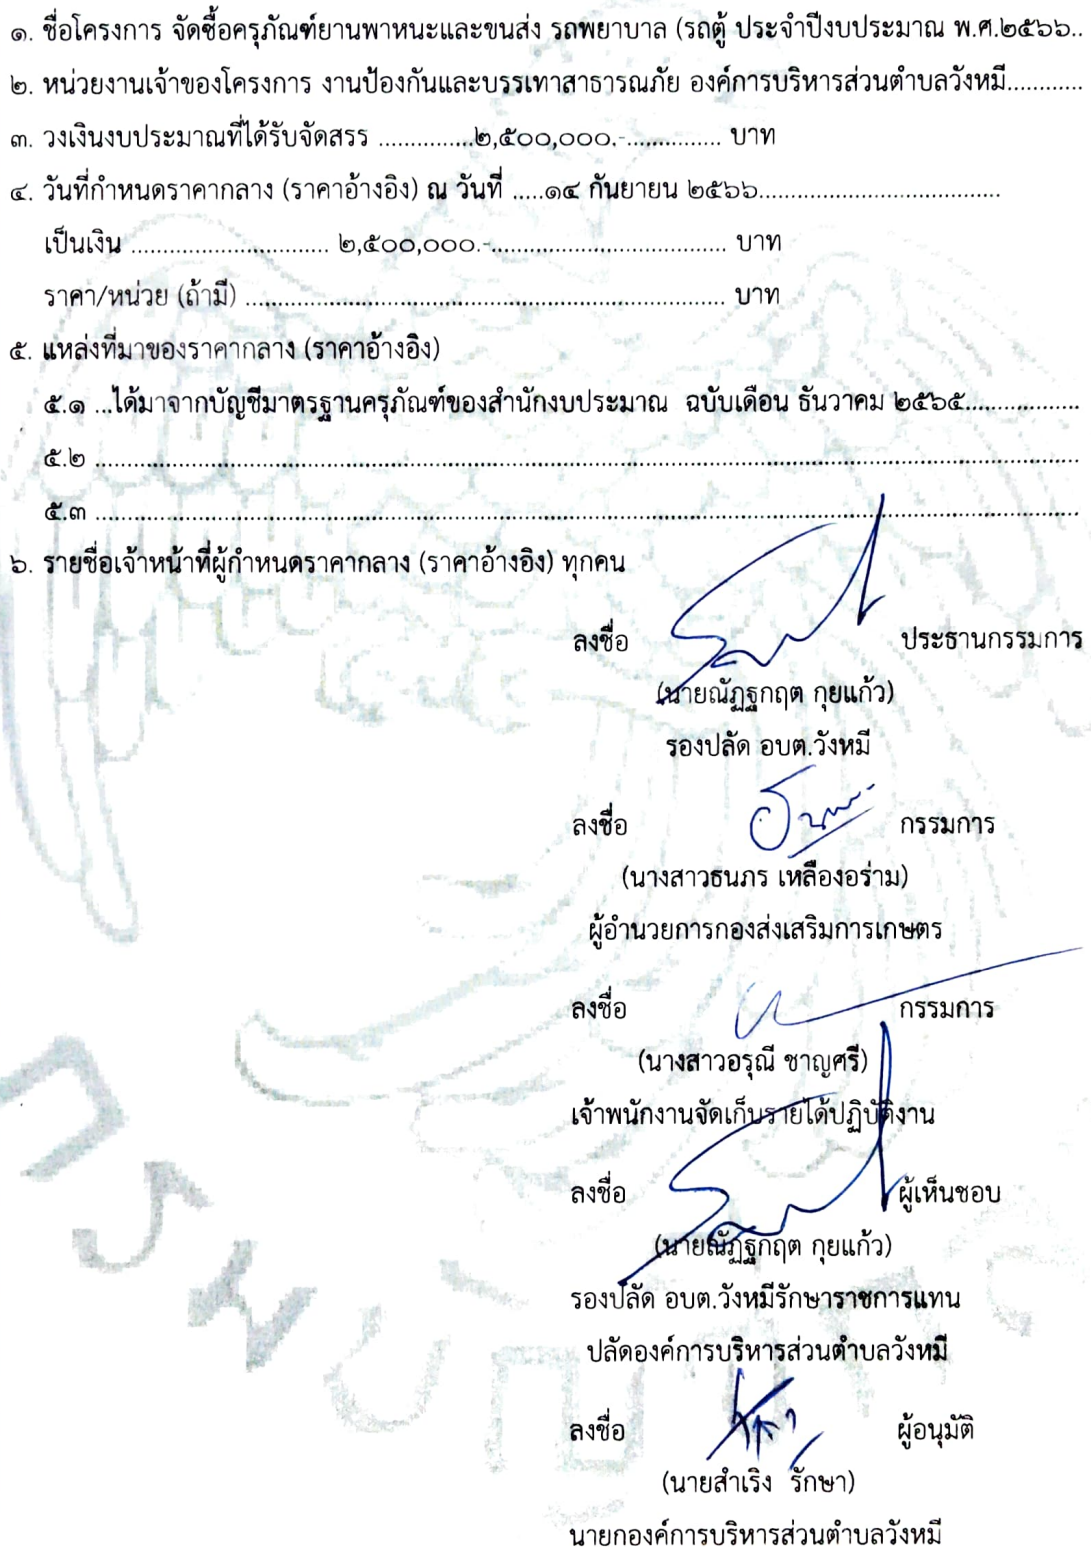 ๑. ชื่อโครงการ จัดซื้อครุภัณฑ์ยานพาหนะและขนส่ง รถพยาบาล (รถตู้ ประจำปีงบประมาณ พ.ศ.๒๕๖๖..
๒. หน่วยงานเจ้าของโครงการ งานป้องกันและบรรเทาสาธารณภัย องค์การบริหารส่วนตำบลวังหมี............
๓. วงเงินงบประมาณที่ได้รับจัดสรร ...............๒,๕๐๐,๐๐๐.-............... บาท
๔. วันที่กำหนดราคากลาง (ราคาอ้างอิง) ณ วันที่ .....๑๔ กันยายน ๒๕๖๖......................................
เป็นเงิน ............................... ๒,๕๐๐,๐๐๐.-..................................... บาท
ราคา/หน่วย (ถ้ามี) ........................................................................... บาท
๕. แหล่งที่มาของราคากลาง (ราคาอ้างอิง)
๕.๑ ...ได้มาจากบัญชีมาตรฐานครุภัณฑ์ของสำนักงบประมาณ ฉบับเดือน ธันวาคม ๒๕๖๕..................
๕.๒ ...........................................................................................................................
๕.๓ ...........................................................................................................................
๖. รายชื่อเจ้าหน้าที่ผู้กำหนดราคากลาง (ราคาอ้างอิง) ทุกคน
ลงชื่อ ประธานกรรมการ
(นายณัฏฐกฤต กุยแก้ว)
รองปลัด อบต.วังหมี
ลงชื่อ กรรมการ
(นางสาวธนภร เหลืองอร่าม)
ผู้อำนวยการกองส่งเสริมการเกษตร
ลงชื่อ กรรมการ
(นางสาวอรุณี ชาญศรี)
เจ้าพนักงานจัดเก็บรายได้ปฏิบัติงาน
ลงชื่อ ผู้เห็นชอบ
(นายณัฏฐกฤต กุยแก้ว)
รองปลัด อบต.วังหมีรักษาราชการแทน
ปลัดองค์การบริหารส่วนตำบลวังหมี
ลงชื่อ ผู้อนุมัติ
(นายสำเริง รักษา)
นายกองค์การบริหารส่วนตำบลวังหมี